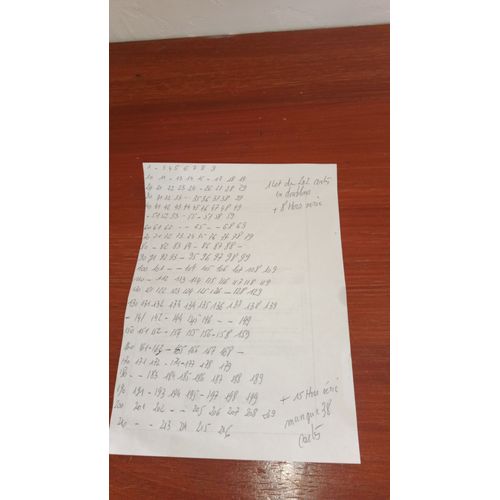 1 - 3 4 5 6 7 8 9
10 11 - 13 14 15 - 17 18 19
20 21 22 23 24 - 26 27 28 29
30 31 32 33 - 35 36 37 38 39
40 41 42 43 44 45 46 47 48 49
- 51 52 53 - 55 - 57 58 59
60 61 62 - - 65 - - 68 69
70 71 72 73 74 75 76 77 78 79
80 - 82 83 84 - 86 87 88 -
90 91 92 93 - 95 96 97 98 99
100 101 - - 104 105 106 107 108 109
110 - 112 113 114 115 116 117 118 119
120 121 122 123 124 125 126 - 128 129
130 131 132 133 134 135 136 137 138 139
- 141 142 - 144 145 146 - - 149
150 151 152 - 154 155 156 - 158 159
160 161 - 165 166 167 168 -
170 171 172 - 174 - 177 178 179
180 - - 183 184 185 186 187 188 189
190 191 - 193 194 195 - 197 198 199
200 201 202 - - 205 206 207 208 209
210 - - 213 214 215 216
1 lot de 402 cartes
en doubles
+ 8 Hors série
+ 15 Hors série
manque 38
cartes